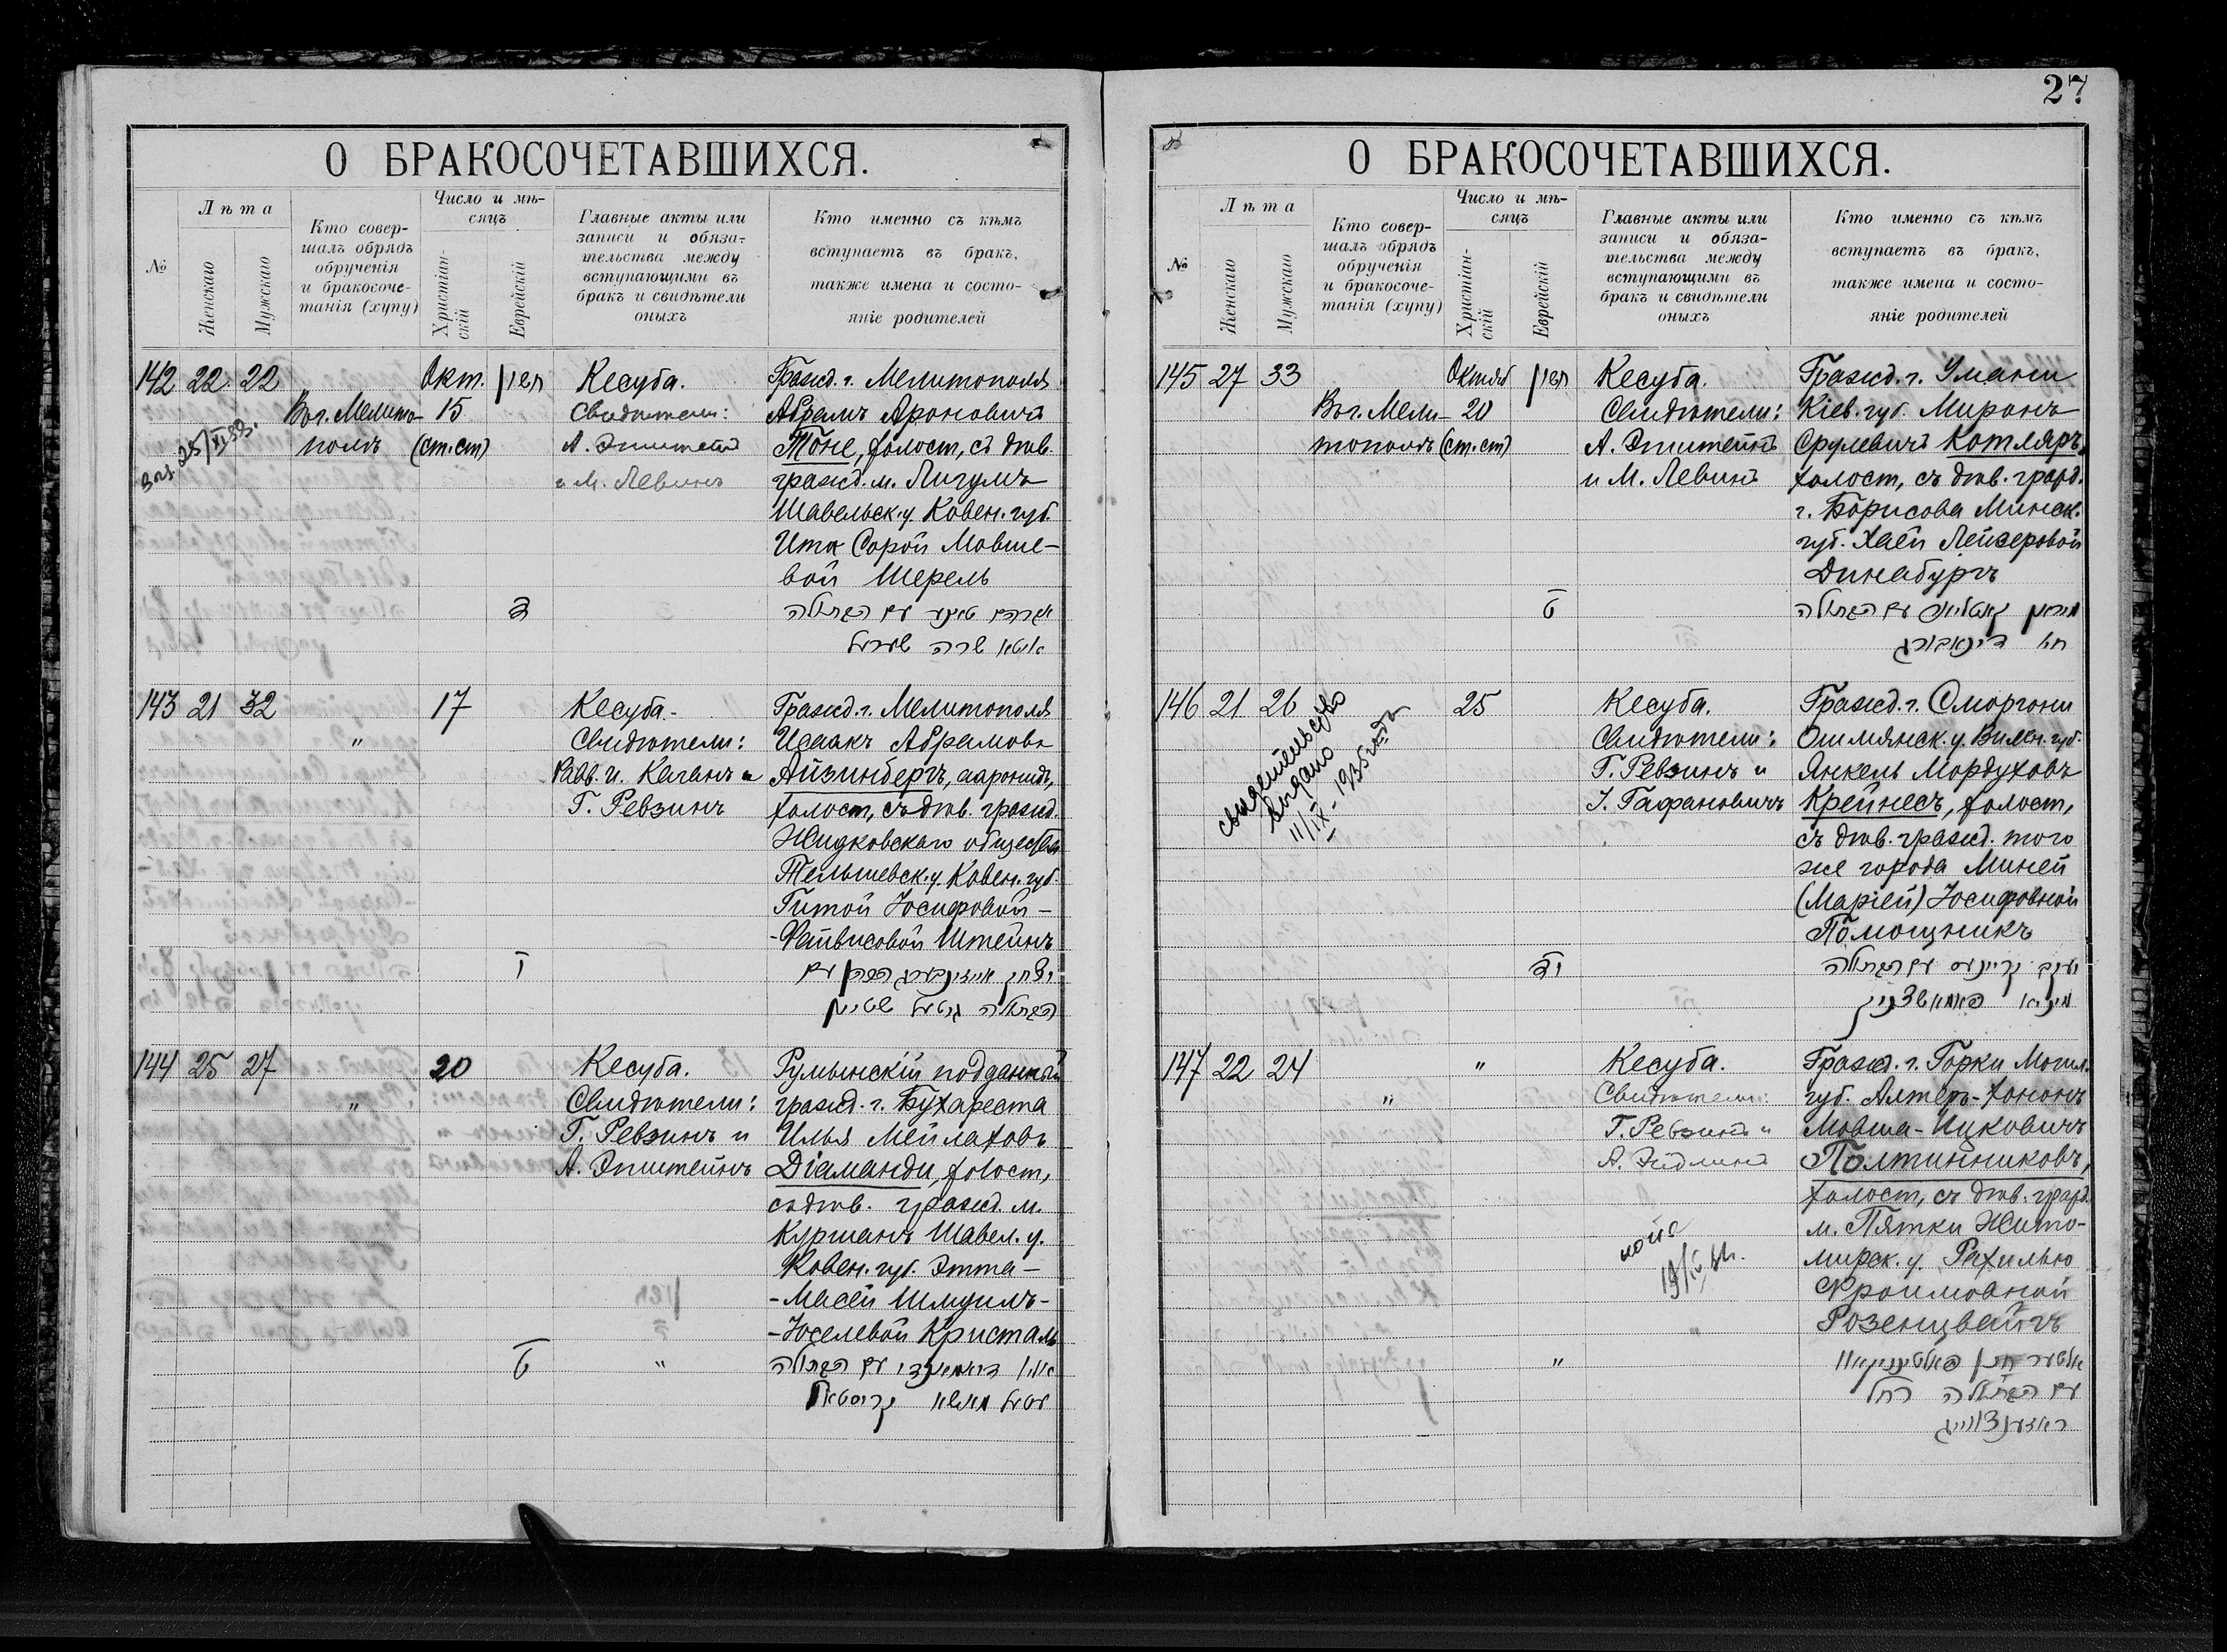 27
О БРАКОСОЧЕТАВШИХСЯ.
№
Лѣта
Женскаго
Мужскаго
Кто совер-
шалъ обрядъ
обрученія
и бракосоче-
танія (хупу)
Число и мѣ-
сяцъ
Христіан-
скій
Еврейскій
Главные акты или
записи и обяза-
тельства между
вступающими въ
бракъ и свидѣтели
оныхъ
Кто именно съ кѣмъ
вступаетъ въ бракъ,
также имена и состо-
яніе родителей
142 22 22
Въ г. Мелито-
полѣ
Окт.
15
(ст. ст)
חשון
ד
Кесуба.
Свидѣтели:
А. Эпштейнъ
и М. Левинъ
Гражд. г. Мелитополя
Абрамъ Ароновичъ
Тоне, холост, съ дѣв.
гражд. м. Лигумъ
Шавельск. у. Ковен. губ.
Ита Сорой Мовше-
вой Шерель
אברהם טאנע עם הבתולה
איטא שרה שערעל
143 21 32
"
17
ו
Кесуба.-
Свидѣтели:
Равв. И. Каганъ и
Г. Ревзинъ
Гражд. г. Мелитополя
Исаакъ Абрамовъ
Айзинбергъ, ааронидъ,
холост, съ дѣв. гражд.
Жидковскаго общества
Тельшевск. у. Ковен. губ.
Гитой Іосифовой-
-Файвисовой Штейнъ
יצחק אייזינבערג הכהן עם
הבתולה גיטעל שטיין
144 25 27
"
20
ט
Кесуба.
Свидѣтели:
Г. Ревзинъ и
А. Эпштейнъ
"
Румынскій подданный
гражд. г. Бухареста
Илья Мейлаховъ
Діаманди, холост,
съ дѣв. гражд. м.
Куршанъ Шавел. у.
Ковен. губ. Этта-
-Масей Шмуилъ-
-Юселевой Кристаль
אליו דיאמאנדי עם הבתולה
עטעל מאשא קריסטאל
О БРАКОСОЧЕТАВШИХСЯ.
№
Лѣта
Женскаго
Мужскаго
Кто совер-
шалъ обрядъ
обрученія
и бракосоче-
танія (хупу)
Число и мѣ-
сяцъ
Христіан-
скій
Еврейскій
Главные акты или
записи и обяза-
тельства между
вступающими въ
бракъ и свидѣтели
оныхъ
Кто именно съ кѣмъ
вступаетъ въ бракъ,
также имена и состо-
яніе родителей
145 27 33
Въ г. Мели-
тополѣ
Октяб
20
(ст. ст)
חשון
ט
Кесуба.
Свидѣтели:
А. Эпштейнъ
и М. Левинъ
Гражд. г. Умани
Кіев. губ. Миронъ
Срулевичъ Котляръ,
холост, съ дѣв. гражд.
г. Борисова Минск.
губ. Хаей Лейзеровой
Динабургъ
עם הבתולה
חיה דינאבורג
146 21 26
свидетельство
выдано
11/IX - 1935 года
25
יד
Кесуба.
Свидѣтели:
Г. Ревзинъ и
І. Гафановичъ
Гражд. г. Сморгони
Ошмянск. у. Вилен. губ.
Янкель Мордуховъ
Крейнесъ, холост,
съ дѣв. гражд. того
же города Миней
(Маріей) Іосифовной
Помощникъ
יעקב קריינעס עם הבתולה
מינא פאמאשצניק
147 22 24
"
"
"
Кесуба.
Свидѣтели:
Г. Ревзинъ и
А. Эйдлинъ
Гражд. г. Горки Могил.
губ. Алтеръ-Хононъ
Мовша-Ицковичъ
Полтинниковъ,
холост, съ дѣв. гражд.
м. Пятки Жито-
мирск. у. Рахилью
Фроимовной
Розенцвайгъ
אלטער חנן פאלטיניקאוו
עם הבתולה רחל
ראזענצווייג